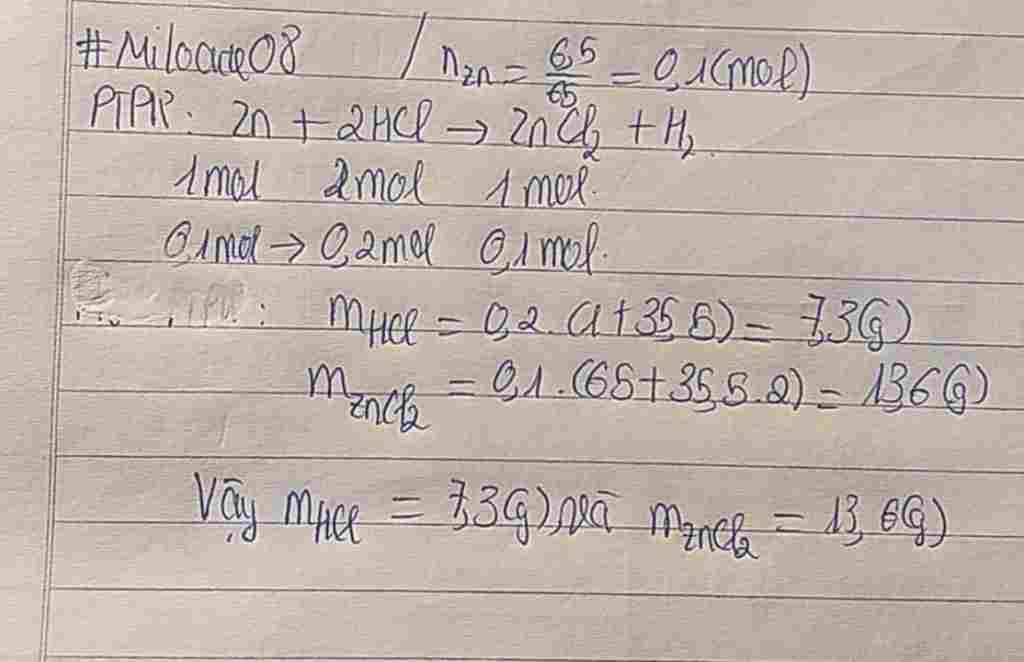 #Miloade08 / n_Zn = 6,5/65 = 0,1(mol)
PTPƯ: Zn + 2HCl → ZnCl₂ + H₂.
1mol 2mol 1mol.
0,1mol → 0,2mol 0,1mol.
m_HCl = 0,2.(1+35,5) = 7,3(g)
m_ZnCl₂ = 0,1.(65+35,5.2) = 13,6(g)
Vậy m_HCl = 7,3(g), và m_ZnCl₂ = 13,6(g)